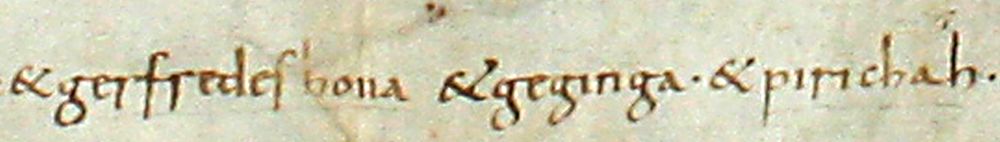 & gerfredes hova & geginga · & pirichah ·